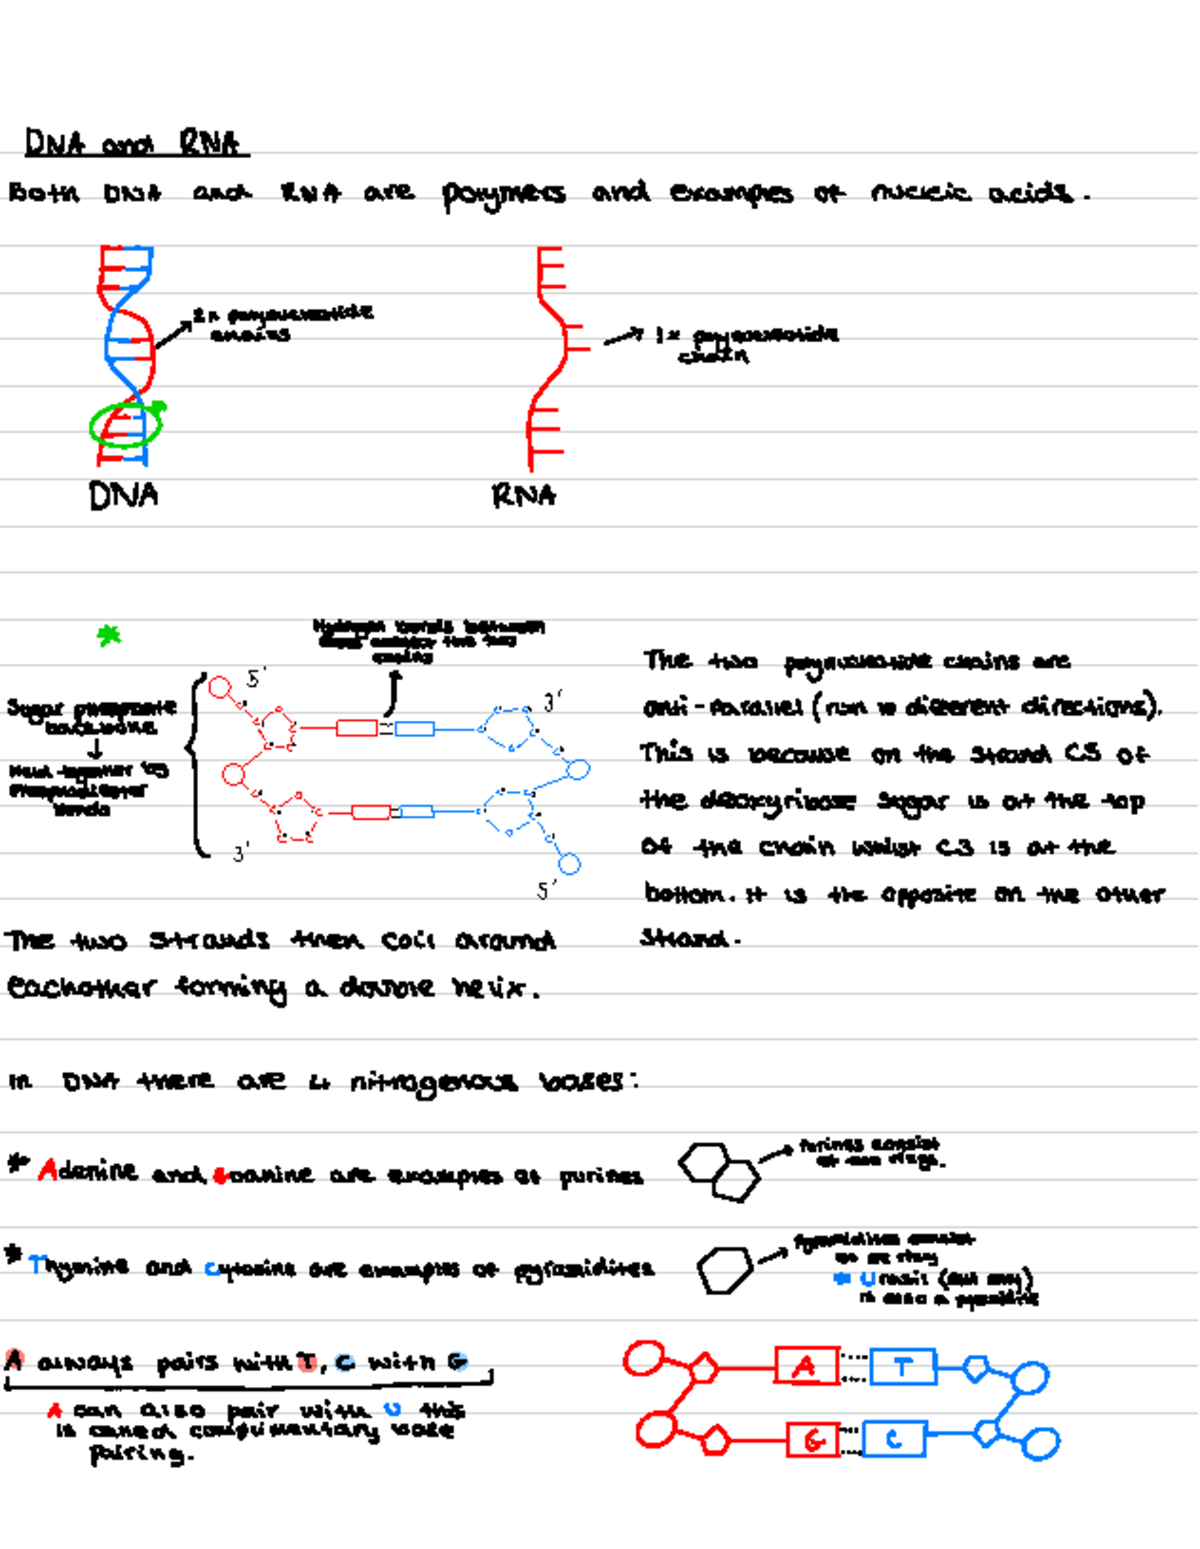 DNA and RNA
Both DNA and RNA are polymers and examples of nucleic acids.
2x polynucleotide
chains
1x polynucleotide
chain
DNA
RNA
*
Hydrogen bonds between
the two
chains
Sugar phosphate
backbone
Held together by
Phosphodiester
bonds
5'
3'
3'
5'
The two polynucleotide chains are
anti-parallel (run in different directions).
This is because on the strand C5 of
the deoxyribose sugar is at the top
of the chain whilst C3 is at the
bottom. It is the opposite on the other
strand.
The two strands then coil around
eachother forming a double helix.
In DNA there are 4 nitrogenous bases:
* Adenine and Guanine are examples of purines
Purines consist
of two rings.
* Thymine and Cytosine are examples of pyramidites
consist
of one ring
* Uracil (RNA only)
is also a
A always pairs with T, C with G
A can also pair with U this
is called complimentary base
pairing.
A T
G C